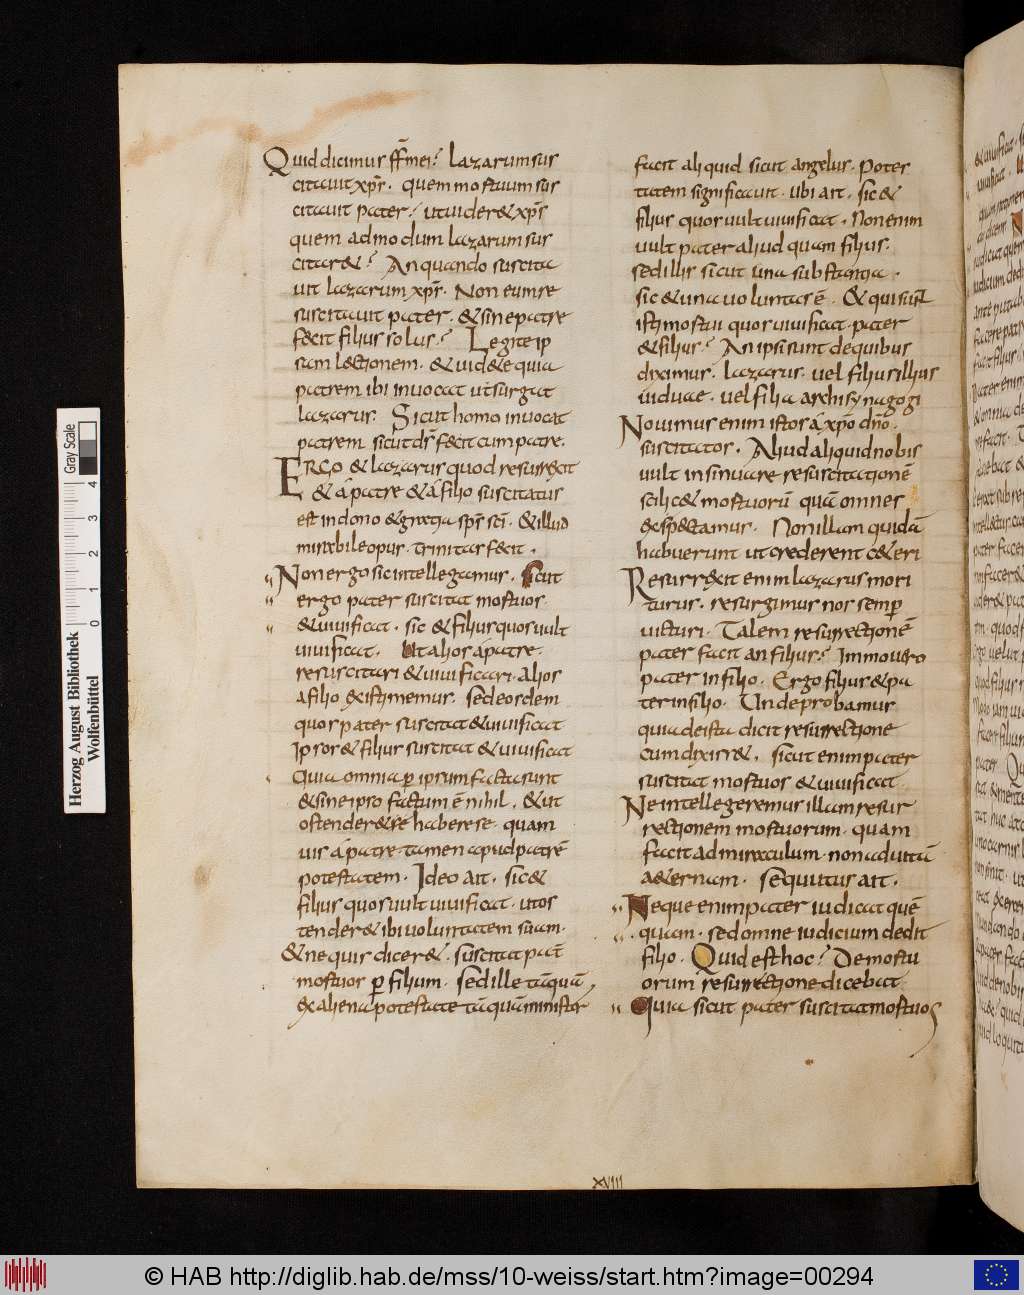 Quid dicimus ff mei? Lazarum sus
citauit xpr. quem mortuum sus
citauit pater? ut uideret xps
quem admodum lazarum sus
citaret? An quando suscita
uit lazarum xps. Non eum re
suscitauit pater. & sine patre
fecit filius solus? Legite ip
sam lectionem. & uidete quia
patrem ibi inuocat ut surgat
lazarus. Sicut homo inuocat
patrem. sicut ds fecit cum patre.
ERGO & lazarus quod resurrexit
& a patre & a filio suscitatus
est in dono & gratia sps sci. & illud
mirabile opus. trinitas fecit.
Non ergo sic intellegamus. Sicut
ergo pater suscitat mortuos.
& uiuificat. sic & filius quos uult
uiuificat. Ut alios a patre.
resuscitari & uiuificari. alios
a filio existimemus. sed eosdem
quos pater suscitat & uiuificat
Ipsos & filius suscitat & uiuificat
Quia omnia p ipsum facta sunt
& sine ipso factum ē nihil. & ut
ostenderet se habere se. quam
uis a patre tamen apud patrē
potestatem. Ideo ait. sic &
filius quos uult uiuificat. ut os
tenderet ibi uoluntatem suam.
& ne quis diceret. suscitat pat
mortuos p filium. sed ille tāquā
ex aliena potestate tā quā minister
facit aliquid sicut angelus. Potes
tatem significauit. ubi ait. sic &
filius quos uult uiuificat. Non enim
uult pater aliud quam filius.
sed illis sicut una substantia.
sic & una uoluntas ē. Et qui sunt
isti mortui quos uiuificat pater
& filius? An ipsi sunt de quibus
diximus. lazarus. uel filius illius
uiduae. uel filia archisynagogi
Nouimus enim istos a xpo dno.
suscitatos. Aliud aliquid nobis
uult insinuare resuscitationē
scilicet mortuorū quā omnes
exspectamus. Non illam quidā
habuerunt ut crederent ceteri
Resurrexit enim lazarus mori
turus. resurgimus nos semp
uicturi. Talem resurrectionē
pater facit an filius? Immo uero
pater in filio. Ergo filius & pa
ter in filio. Unde probamus
quia de ista dicit resurrectione
cum dixisset. sicut enim pater
suscitat mortuos & uiuificat.
Ne intellegeremus illam resur
rectionem mortuorum. quam
facit ad miraculum. non ad uitā
aeternam. sequutus ait.
Neque enim pater iudicat quē
quam. sed omne iudicium dedit
filio. Quid est hoc? De mortu
orum resurrectione dicebat.
Quia sicut pater suscitat mortuos
XVIII
Gray Scale
4
3
2
1
0
Herzog August Bibliothek
Wolfenbüttel
© HAB http://diglib.hab.de/mss/10-weiss/start.htm?image=00294